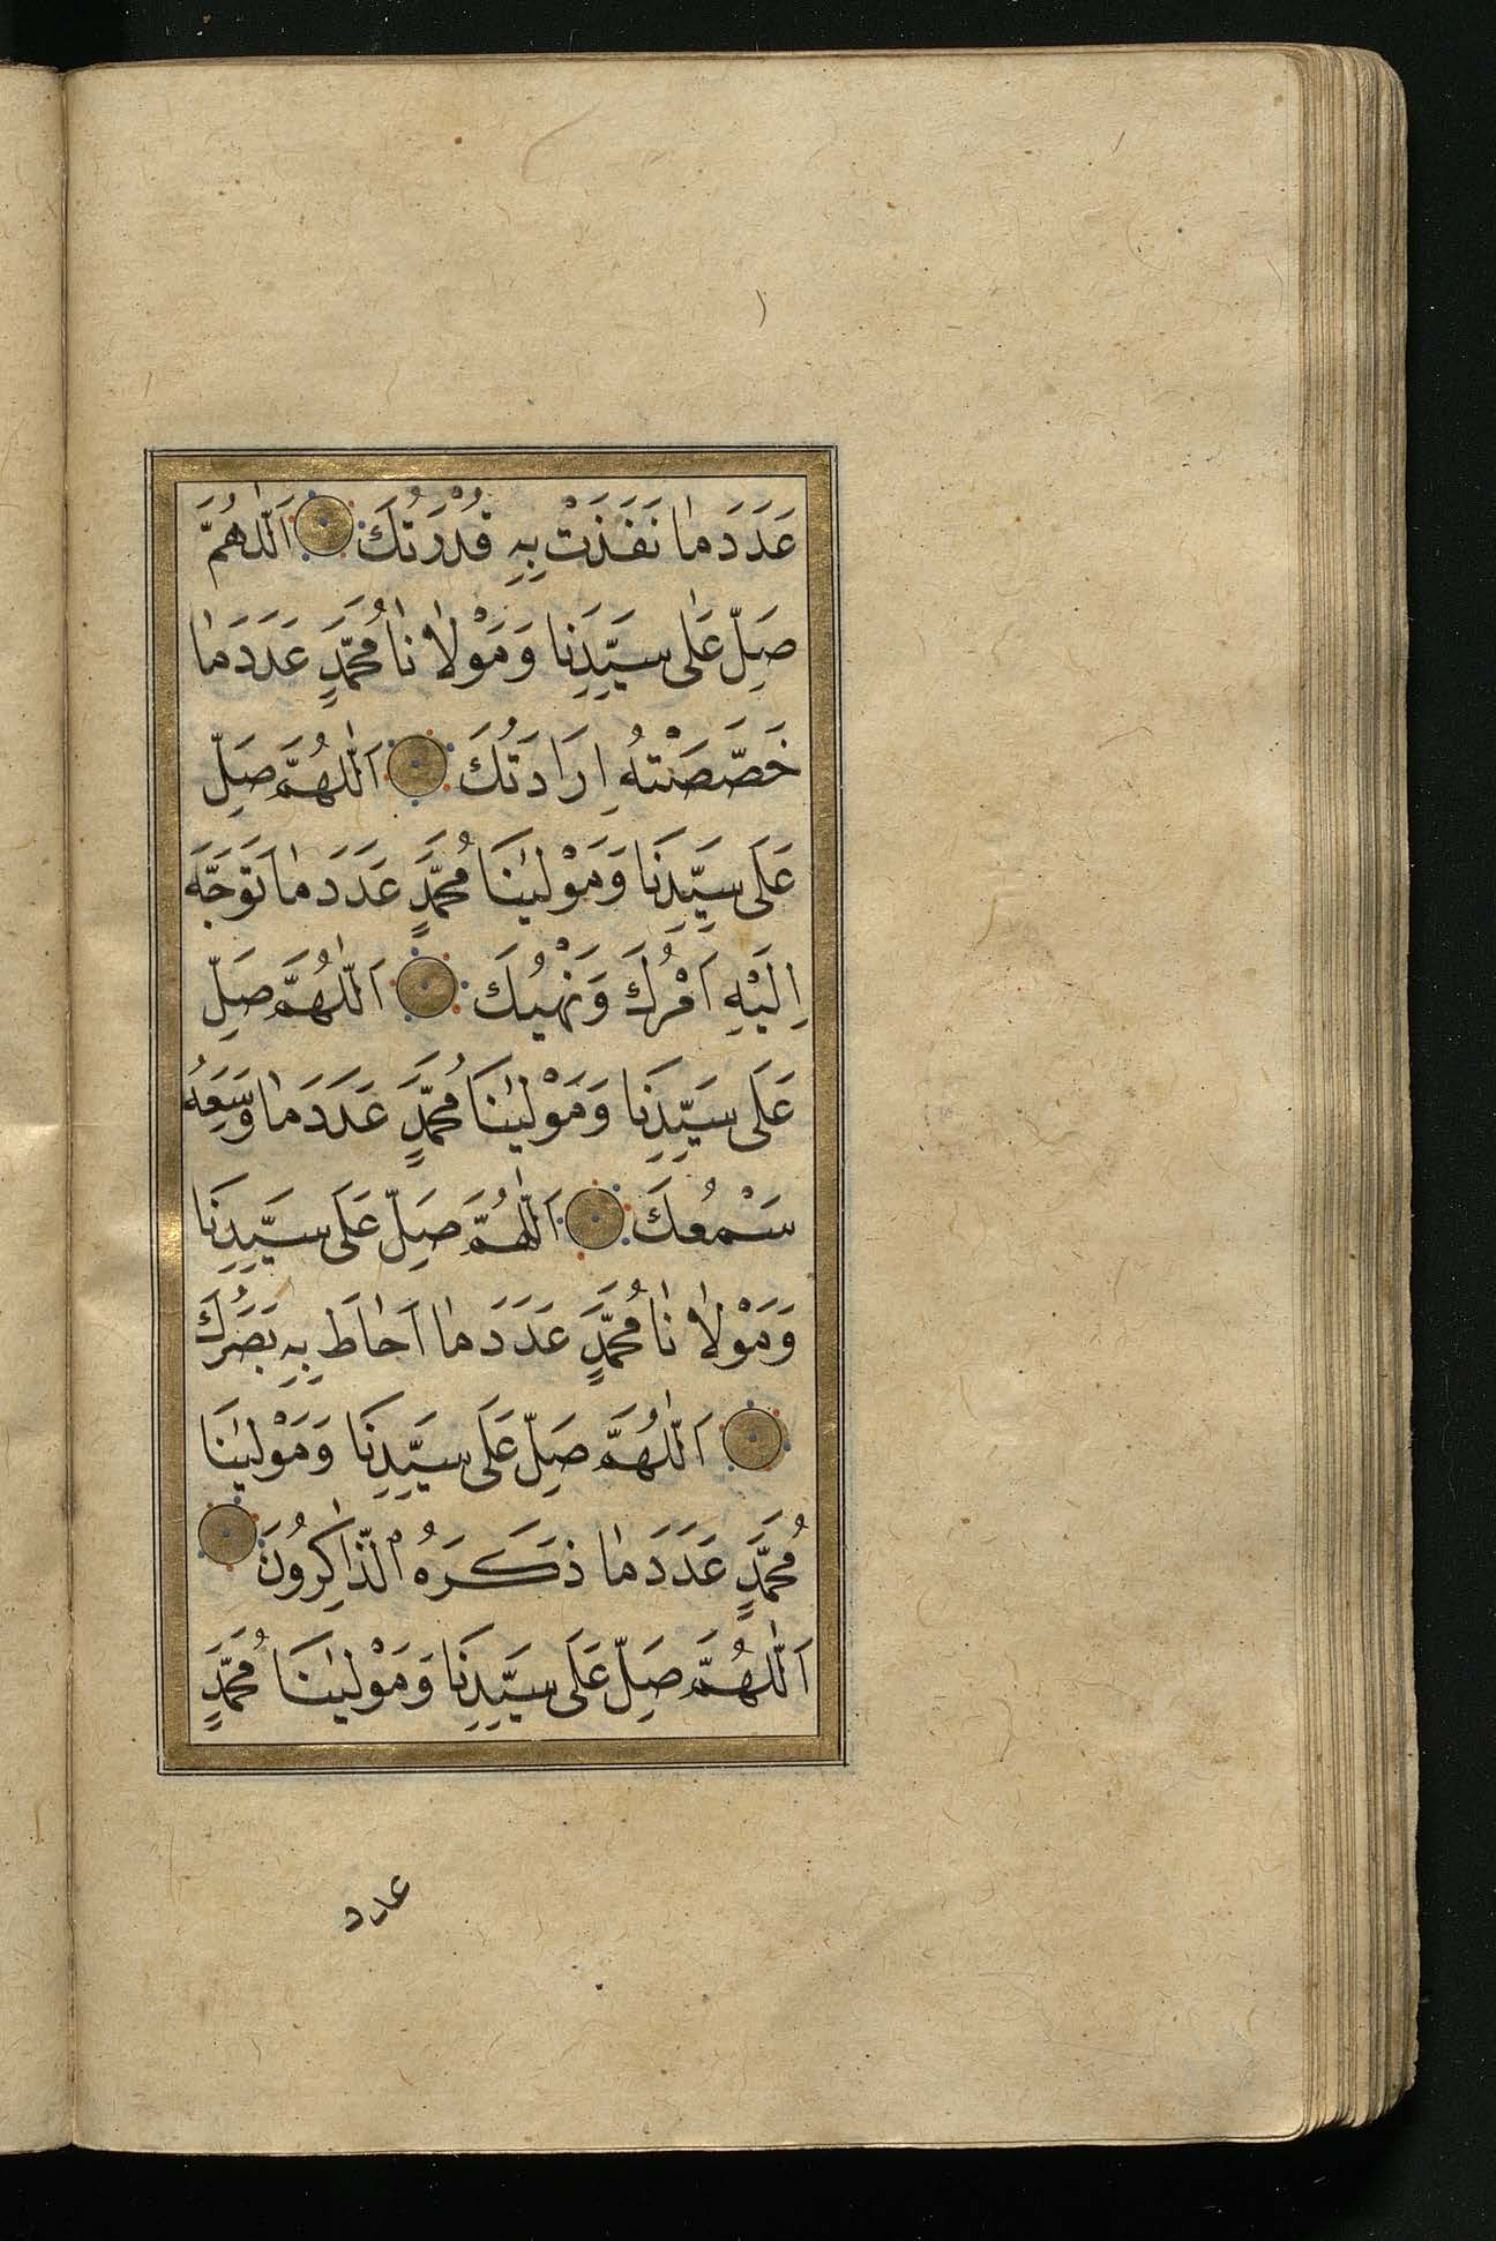 عَدَدَ مَا نَفَذَتْ بِهِ قُدْرَتُكَ اَللّٰهُمَّ
صَلِّ عَلٰى سَيِّدِنَا وَمَوْلَانَا مُحَمَّدٍ عَدَدَ مَا
خَصَّصَتْهُ اِرَادَتُكَ اَللّٰهُمَّ صَلِّ
عَلَى سَيِّدِنَا وَمَوْلٰينَا مُحَمَّدٍ عَدَدَ مَا تَوَجَّهَ
اِلَيْهِ اَمْرُكَ وَنَهْيُكَ اَللّٰهُمَّ صَلِّ
عَلَى سَيِّدِنَا وَمَوْلٰينَا مُحَمَّدٍ عَدَدَ مَا وَسِعَهُ
سَمْعُكَ اَللّٰهُمَّ صَلِّ عَلَى سَيِّدِنَا
وَمَوْلَانَا مُحَمَّدٍ عَدَدَ مَا اَحَاطَ بِهِ بَصَرُكَ
اَللّٰهُمَّ صَلِّ عَلَى سَيِّدِنَا وَمَوْلٰينَا
مُحَمَّدٍ عَدَدَ مَا ذَكَرَهُ الذَّاكِرُونَ
اَللّٰهُمَّ صَلِّ عَلَى سَيِّدِنَا وَمَوْلٰينَا مُحَمَّدٍ
عدد